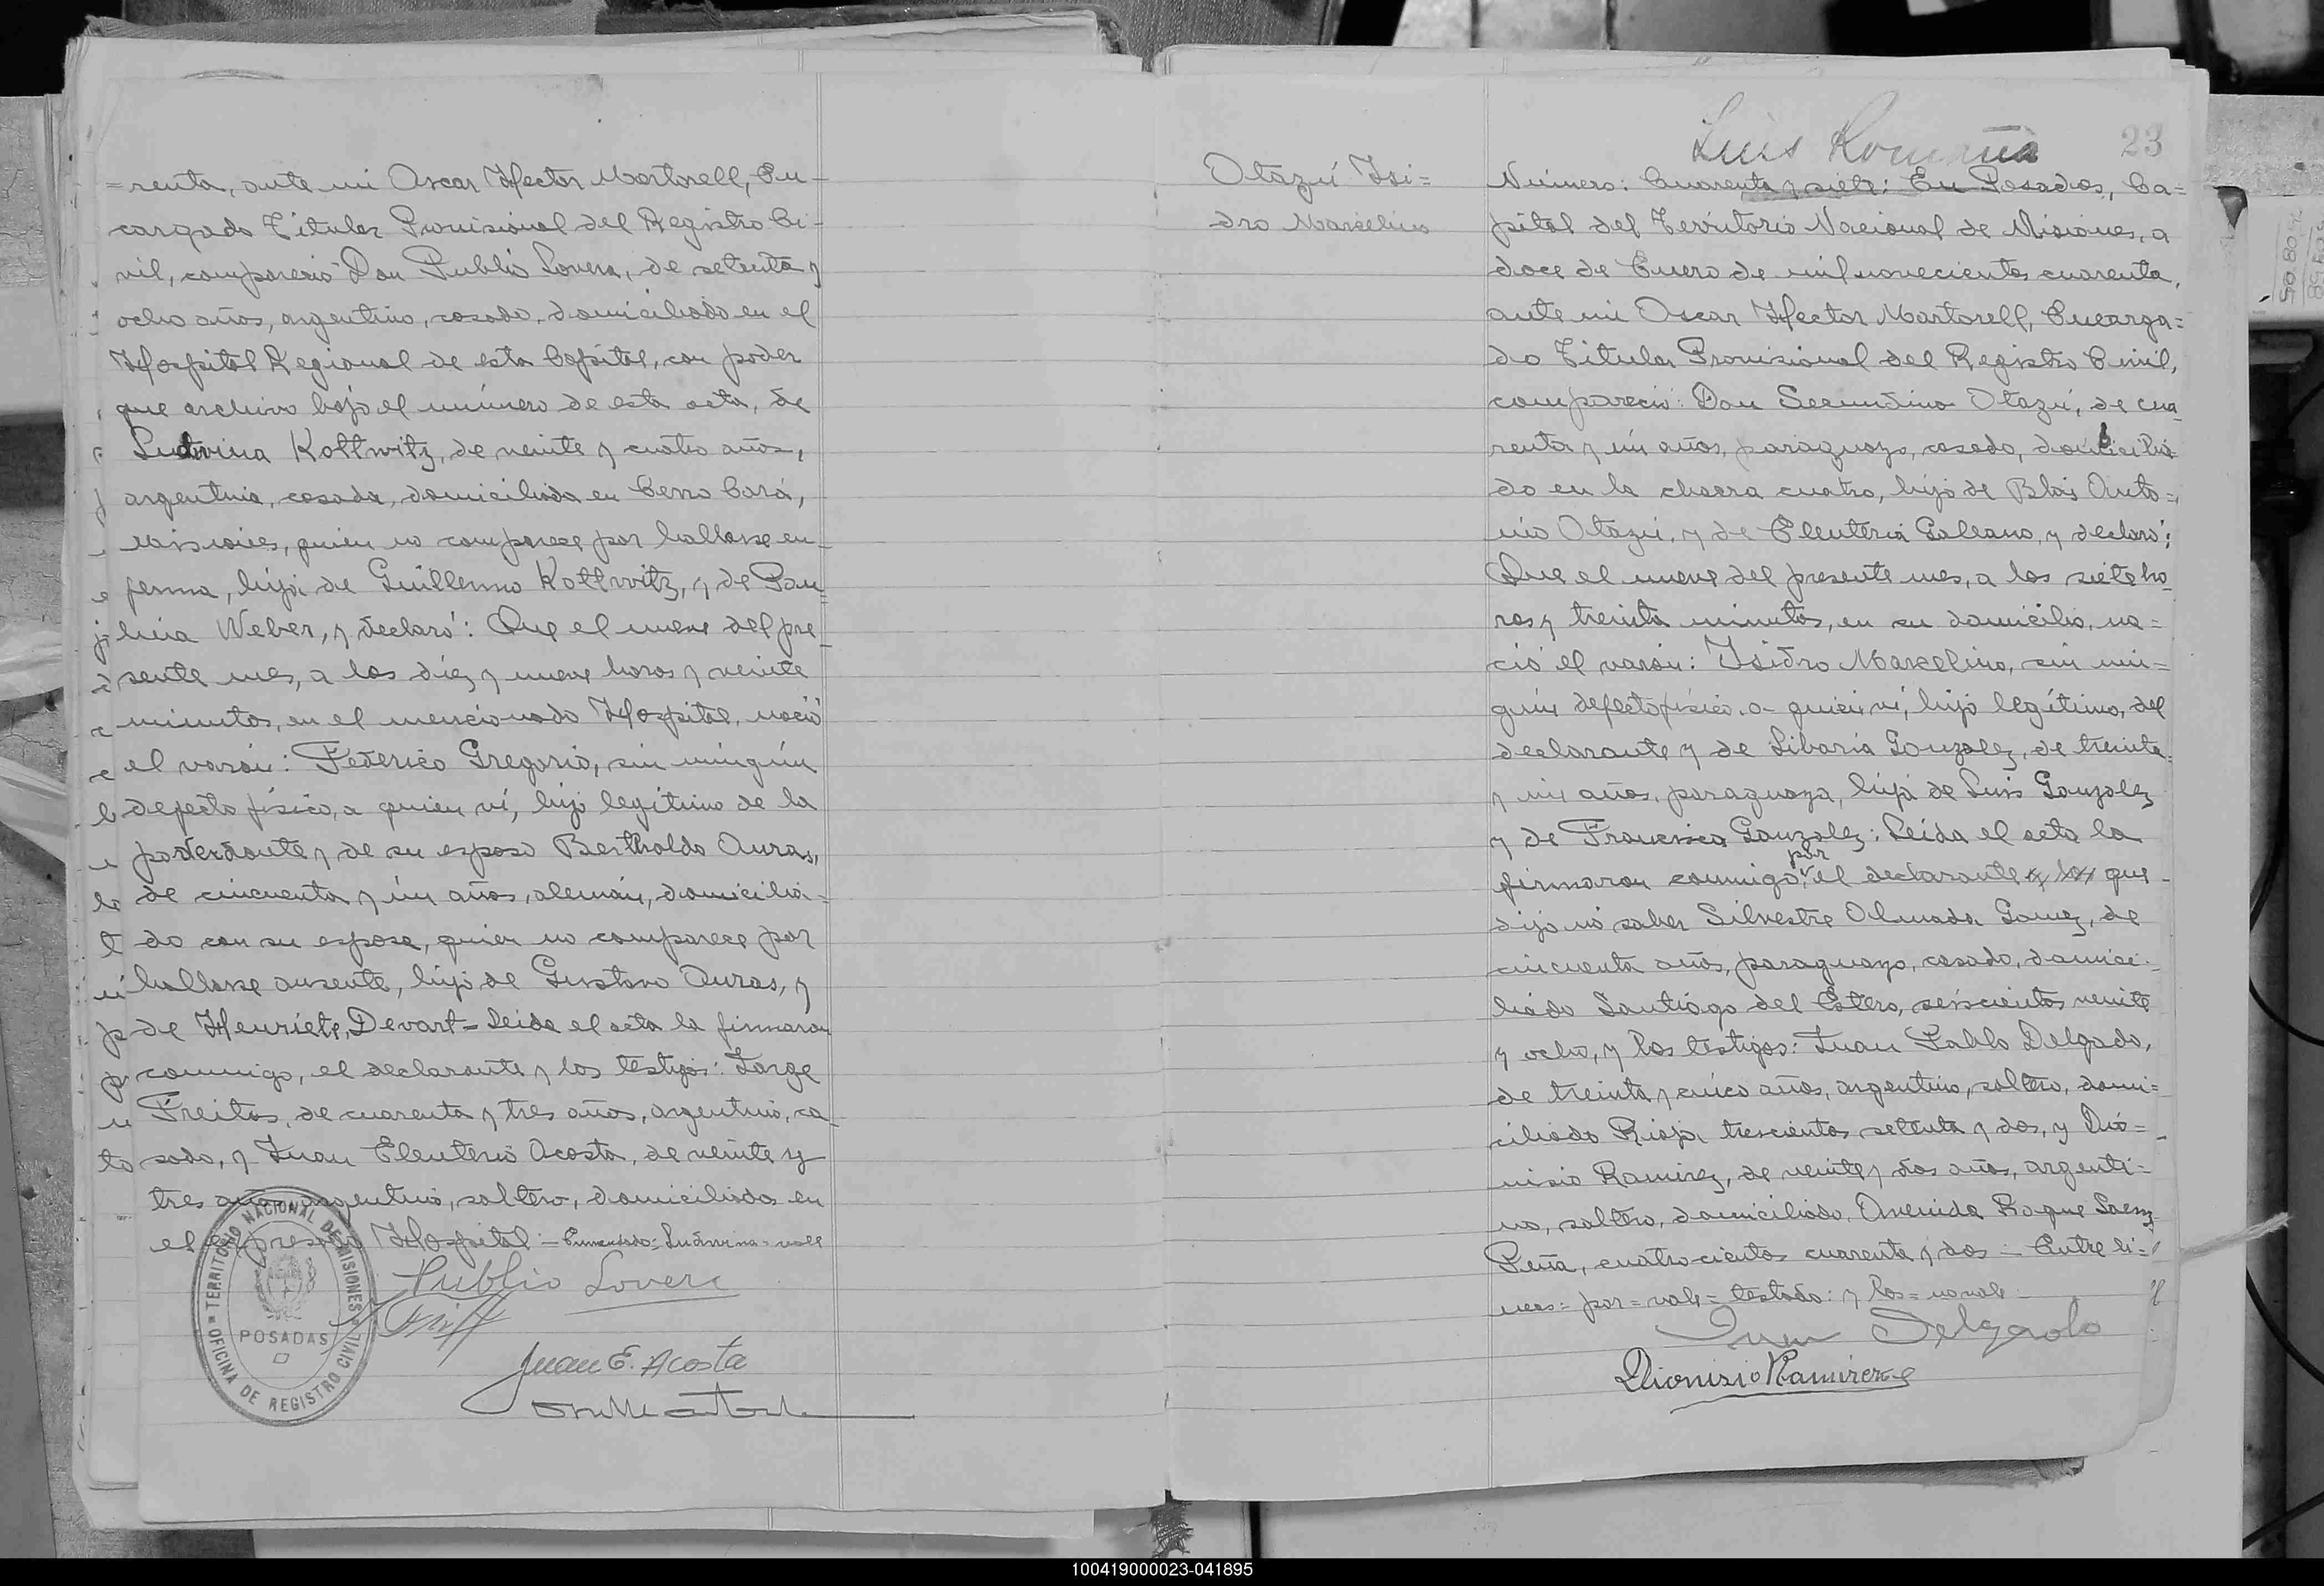 =renta, ante mi Oscar Hector Martorell, En-
cargado Titular Provisional del Registro Ci-
vil, compareció Don Publio Lovera, de setenta y
ocho años, argentino, casado, domiciliado en el
Hospital Regional de esta Capital, con poder
que archivo bajo el número de esta acta, de
Ludwina Kottwitz, de veinte y cuatro años,
argentina, casada, domiciliada en Cerro Corá,
Misiones, quien no comparece por hallarse en-
ferma, hija de Guillermo Kottwitz, y de Pau=
lina Weber, y declaró: Que el nueve del pre-
sente mes, a las diez y nueve horas y veinte
minutos, en el mencionado Hospital, nació
el varón: Federico Gregorio, sin ningún
defecto físico, a quien ví, hijo legítimo de la
poderdante y de su esposo Bertholdo Auras,
de cincuenta y ún años, alemán, domicilia=
do con su esposa, quien no comparece por
hallarse ausente, hijo de Gustavo Auras, y
de Henriete Devart= Leida el acta la firmaron
conmigo, el declarante y los testigos: Jorge
Freitas, de cuarenta y tres años, argentino, ca-
sado, y Juan Eleuterio Acosta, de veinte y
tres años, argentino, soltero, domiciliados en
el expresado Hospital = Enmendado= Ludwina= vale
Publio Lovera
Juan E. Acosta
TERRITORIO NACIONAL DE MISIONES
POSADAS
OFICINA DE REGISTRO CIVIL
Luis Romaña
23
Otazú Isi=
dro Marcelino
Número: Cuarenta y siete: En Posadas, Ca=
pital del Territorio Nacional de Misiones, a
doce de Enero de mil novecientos cuarenta,
ante mi Oscar Hector Martorell, Encarga=
do Titular Provisional del Registro Civil,
compareció: Don Secundino Otazú, de cua
renta y ún años, paraguayo, casado, domicilia=
do en la chacra cuatro, hijo de Blás Anto=
nio Otazú, y de Eleuteria Galeano, y declaró:
Que el nueve del presente mes, a las siete ho
ras y treinta minutos, en su domicilio, na=
ció el varón: Isidro Marcelino, sin nin=
gún defecto físico, a quien ví, hijo legítimo, del
declarante y de Libaria Gonzalez, de treinta
y ún años, paraguaya, hija de Luis Gonzalez
y de Francisca Gonzalez: Leida el acta la
firmaron conmigo, por el declarante y los que
dijo no saber Silvestre Almada Gomez, de
cincuenta años, paraguayo, casado, domici=
liado Santiago del Estero, seiscientos veinte
y ocho, y los testigos: Juan Pablo Delgado,
de treinta y cinco años, argentino, soltero, domi=
ciliado Rioja trescientos setenta y dos, y Dio=
nisio Ramirez, de veinte y dos años, argenti=
no, soltero, domiciliado, Avenida Roque Saenz
Peña, cuatrocientos cuarenta y dos = Entre li=
neas= por= vale= testado: y los= no vale
Juan Delgado
Dionisio Ramirez
100419000023-041895